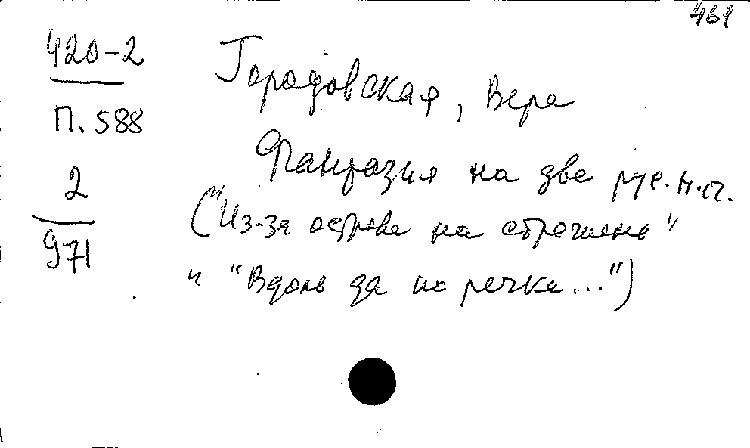 461
420-2
П. 588
2
971
Городовская, Вера
Фантазия на две рус. н. п.
("Из-за острова на стрежень"
и "Вдоль да по речке...")